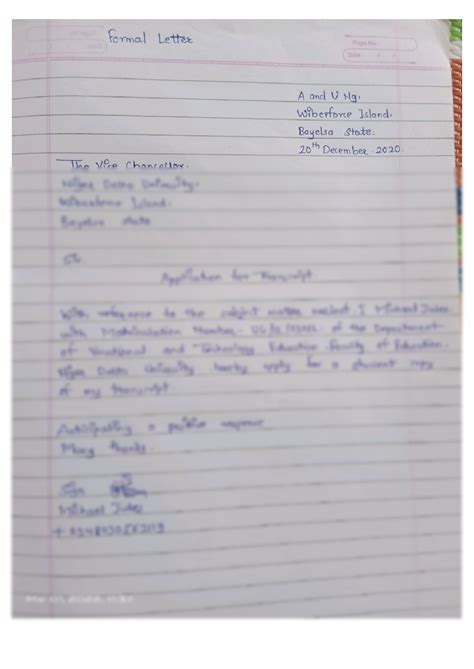 Formal Letter
Page No.
Date / /
A and V Ng.
Wiberforce Island.
Bayelsa State.
20th December. 2020.
The Vice Chancellor.
Niger Delta University.
Wiberforce Island.
Bayelsa state
Application for Transcript.
With reference to the subject matter I Michael Jules
with Matriculation Number of the Department
of Vocational and Technology Education Faculty of Education.
Niger Delta University hereby apply for a student copy
of my transcript.
Anticipating a positive response
Many thanks
Sign
Michael Jules